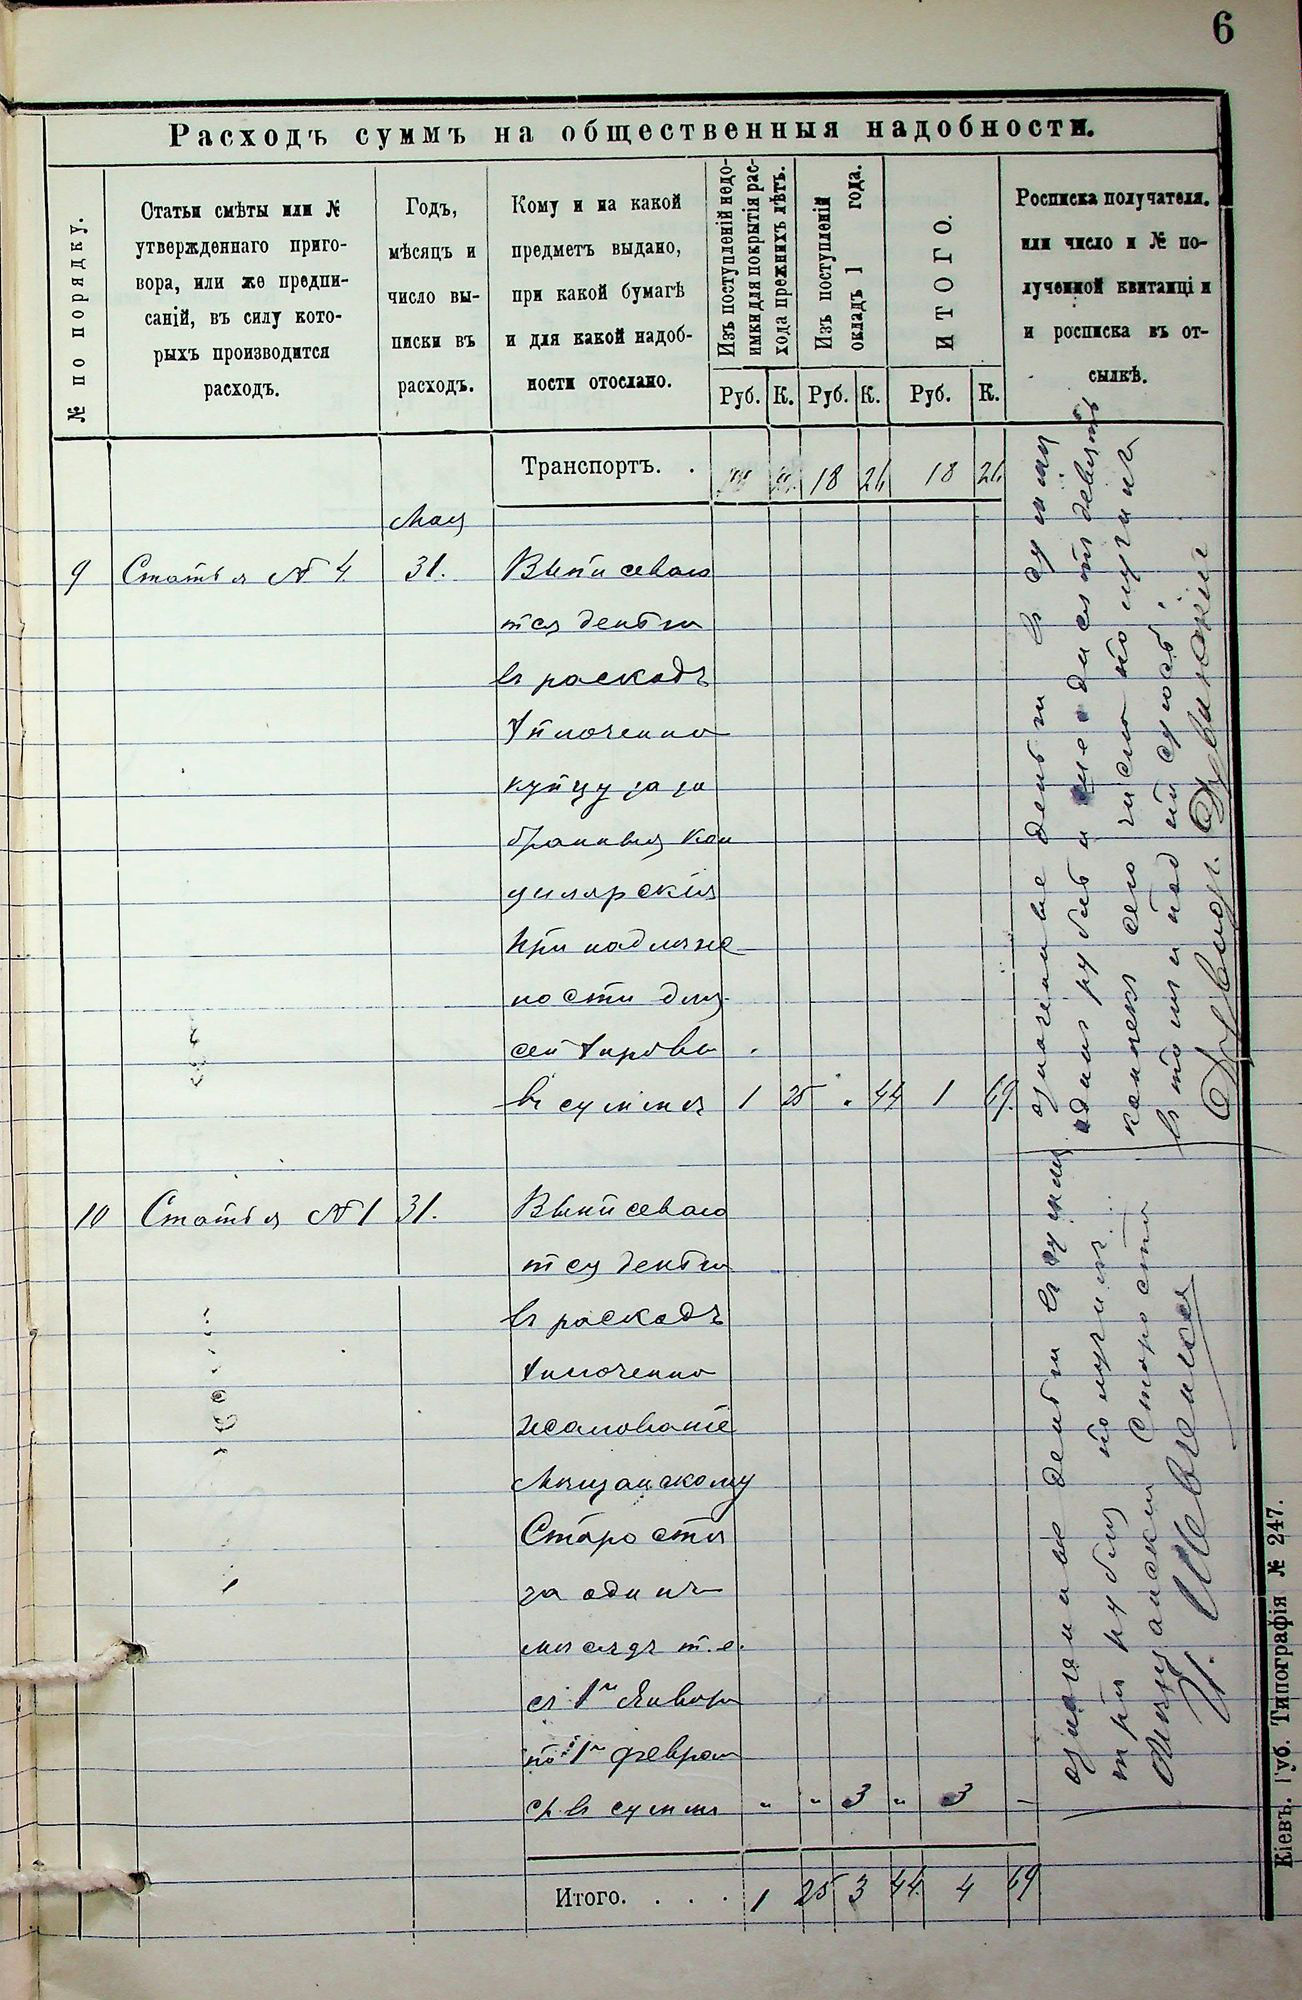 6
Расходъ суммъ на общественныя надобности.
№ по порядку.
Статьи смѣты или №
утвержденнаго приго-
вора, или же предпи-
саній, въ силу кото-
рыхъ производится
расходъ.
Годъ,
мѣсяцъ и
число вы-
писки въ
расходъ.
Кому и на какой
предметъ выдано,
при какой бумагѣ
и для какой надоб-
ности отослано.
Изъ поступленій недо-
имки для покрытія рас-
хода прежнихъ лѣтъ.
Изъ поступленій
окладъ 1 года.
ИТОГО.
Росписка получателя.
или число и № по-
лученной квитанціи
и росписка въ от-
сылкѣ.
Руб. К. Руб. К. Руб. К.
Транспортъ. . " " 18 26 18 26
Мая
9 Статья № 4 31. Выписываю
тся деньги
въ расходъ
Уплоченно
купцу за за
бранныя кан
целярскія
принадлеже
ности для
сей Управы
въ суммѣ 1 25 " 44 1 69
означеные деньги въ суммѣ
одинъ рубль и шесдисятъ девять
копѣекъ сего числа получилъ
въ томъ и под
10 Статья № 1 31. Выписываю
тся деньги
въ расходъ
Уплоченно
жалованіе
Мѣщанскому
Старостѣ
за одинъ
мѣсяцъ т.е.
съ 1го Января
по 1го Феврал
въ суммѣ " " 3 " 3 –
означеные деньги въ суммѣ
три рубля получилъ
Мѣщанскій Староста
Итого. . . . 1 25 3 44 4 69
Кіевъ. Губ. Типографія № 247.